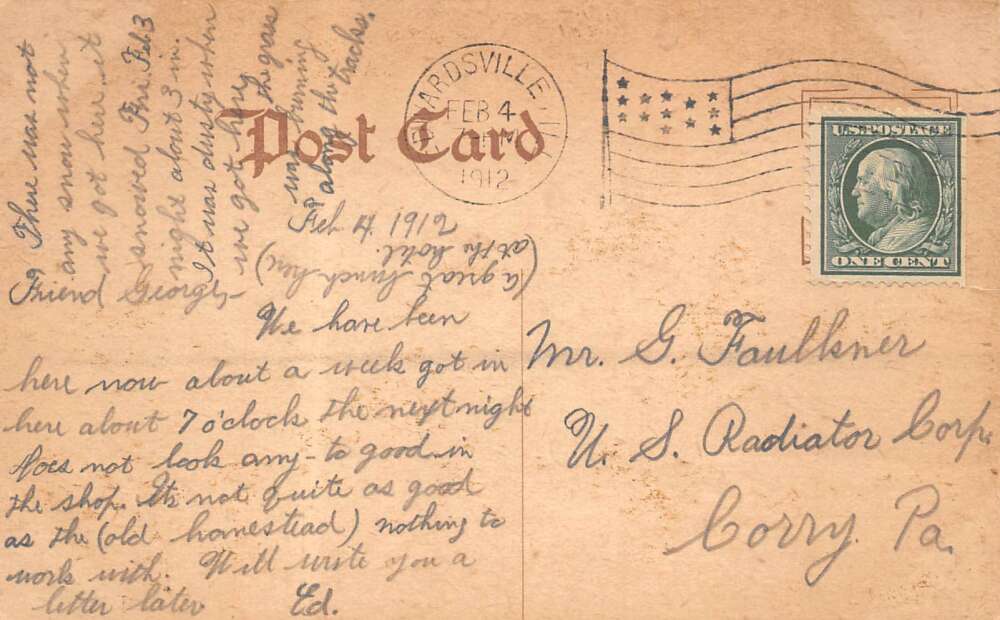 Post Card
FEB 4
1912
U.S. POSTAGE
ONE CENT
There was not
any snow when
we got here. it
snowed Fri. Feb. 3
night about 3 in.
It was dusty when
we got here
the grass
was burning
along the tracks.
Feb 4. 1912
(a great lunch
at the hotel.)
Friend George,-
We have been
here now about a week got in
here about 7 o'clock the next night
Does not look any-to good in
the shop. Its not quite as good
as the (old homestead) nothing to
work with. Will write you a
letter later Ed.
Mr. G. Faulkner
U. S. Radiator Corp.
Corry. Pa.